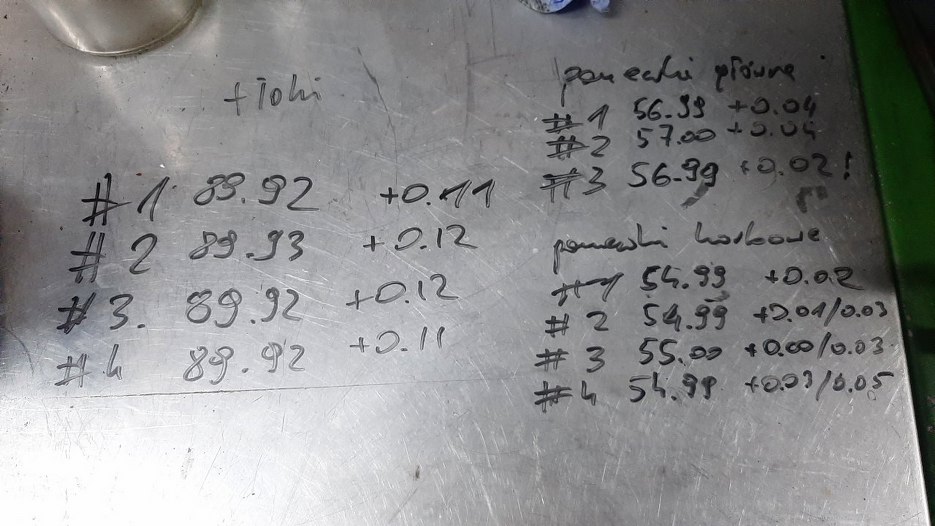 tłoki
#1 89.92 +0.11
#2 89.93 +0.12
#3. 89.92 +0.12
#4 89.92 +0.11
panewki główne
#1 56.99 +0.04
#2 57.00 +0.04
#3 56.99 +0.02!
panewki korbowe
#1 54.99 +0.02
#2 54.99 +0.01/0.03
#3 55.00 +0.00/0.03
#4 54.99 +0.03/0.05